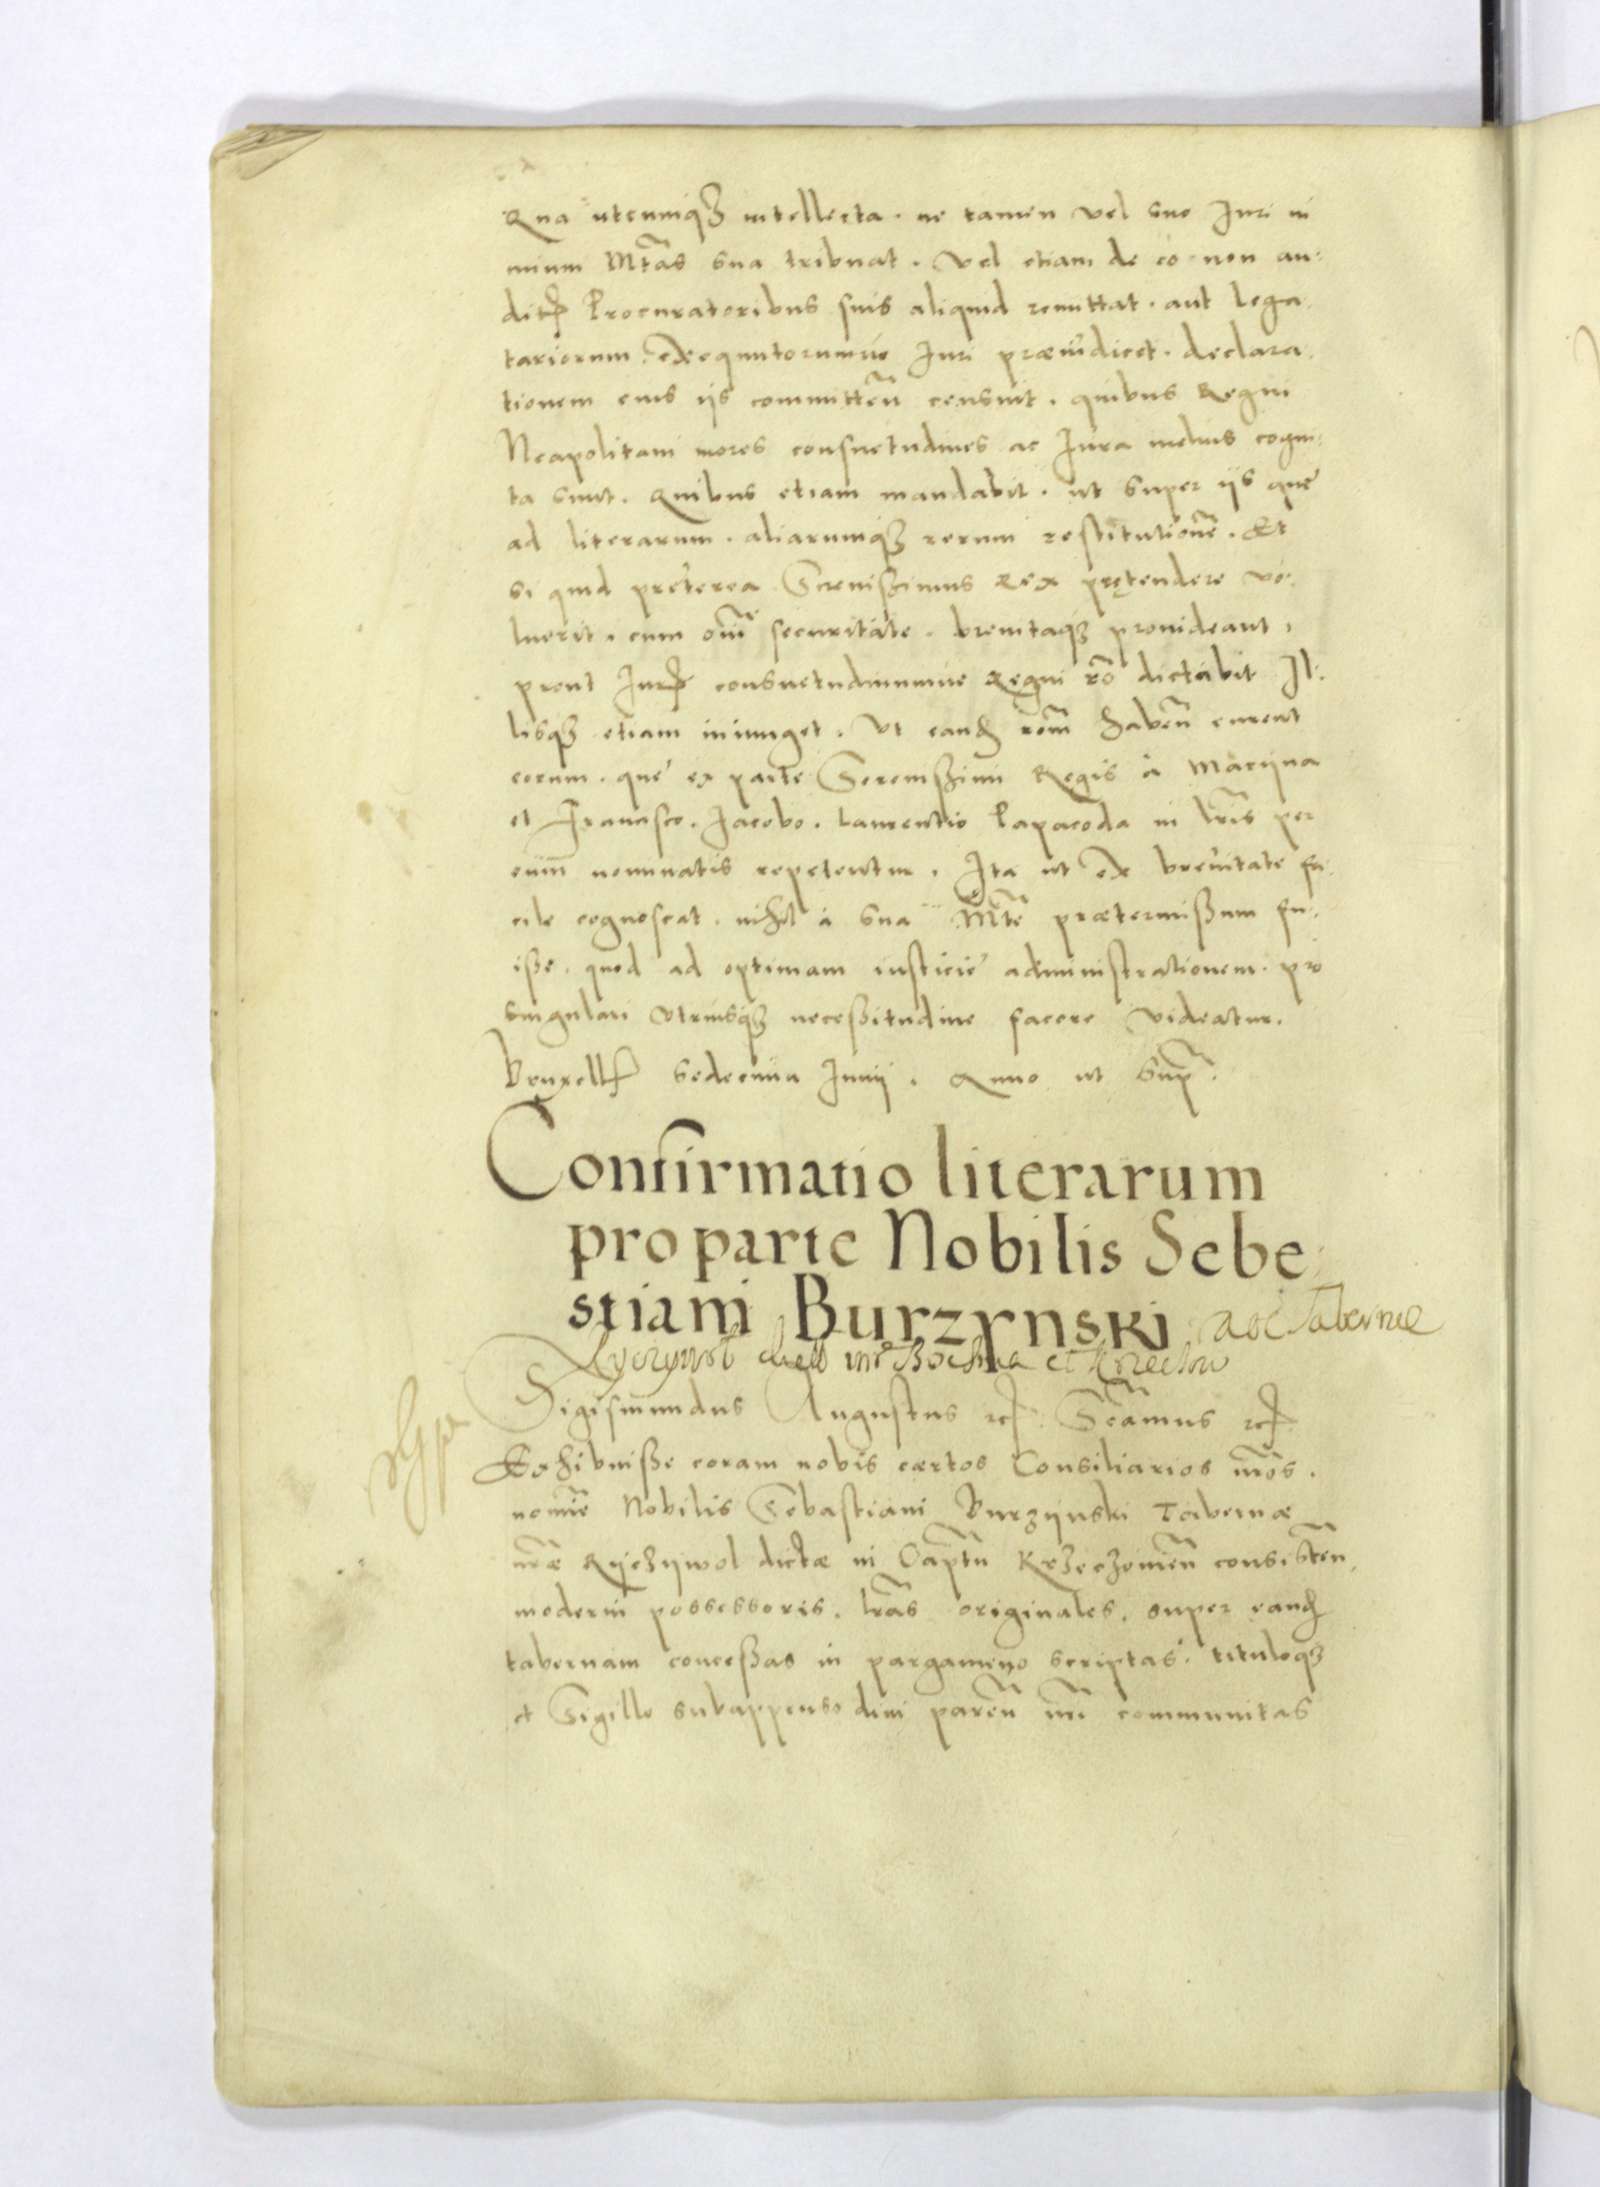 Qua utcumq3 intellecta. ne tamen vel suo Juri ni
mium Mtas sua tribuat. Vel etiam de eo non au:
dit Procuratoribus suis aliquid remittat. aut lega
tariorum. exequutorumue Juri præiudicet. declara
tionem eius iis committen censuit. quibus Regni
Neapolitani mores consuetudines ac Jura melius cogni
ta sunt. Quibus etiam mandabit. ut super iis que
ad literarum. aliarumq3 rerum restitutione. Et
si quid preterea Serenissimus Rex prętendere vo
luerit. cum omi securitate. breuitaq3 prouideant,
prout Jur consuetudinumue Regni ro dictabit Il:
lisq3 etiam iniunget. Ut eand rom haben curent
eorum. que ex parte Serenissimi Regis à Maryna
et Francisco. Jacobo. Laurentio Papacoda in lris per
eum nominatis repetentur. Ita ut ex breuitate fa:
cile cognoscat. nihil à sua Mte prætermissum fu:
isse. quod ad optimam iusticie administrationem. pro
singulari utriusq3 necessitudine facere videatur.
Bruxell sedecima Junij. Anno ut supr.
Confirmatio literarum
pro parte Nobilis Sebe
stiani Burzynski ace Tabernae
Ryczywol in Bochnia et Krzeczow
Sigismundus Augustus rc. Scamus rc
Exhibuisse coram nobis certos Consiliarios nros.
nomie Nobilis Sebastiani Burzijnski Tabernæ
nræ Ryczijwol dictæ in Captu Krzeczouien consisten
moderni possessoris. lras originales. super eand
tabernam concessas in pargameno scriptas. tituloq3
et Sigillo subappenso diui paren nri communitas